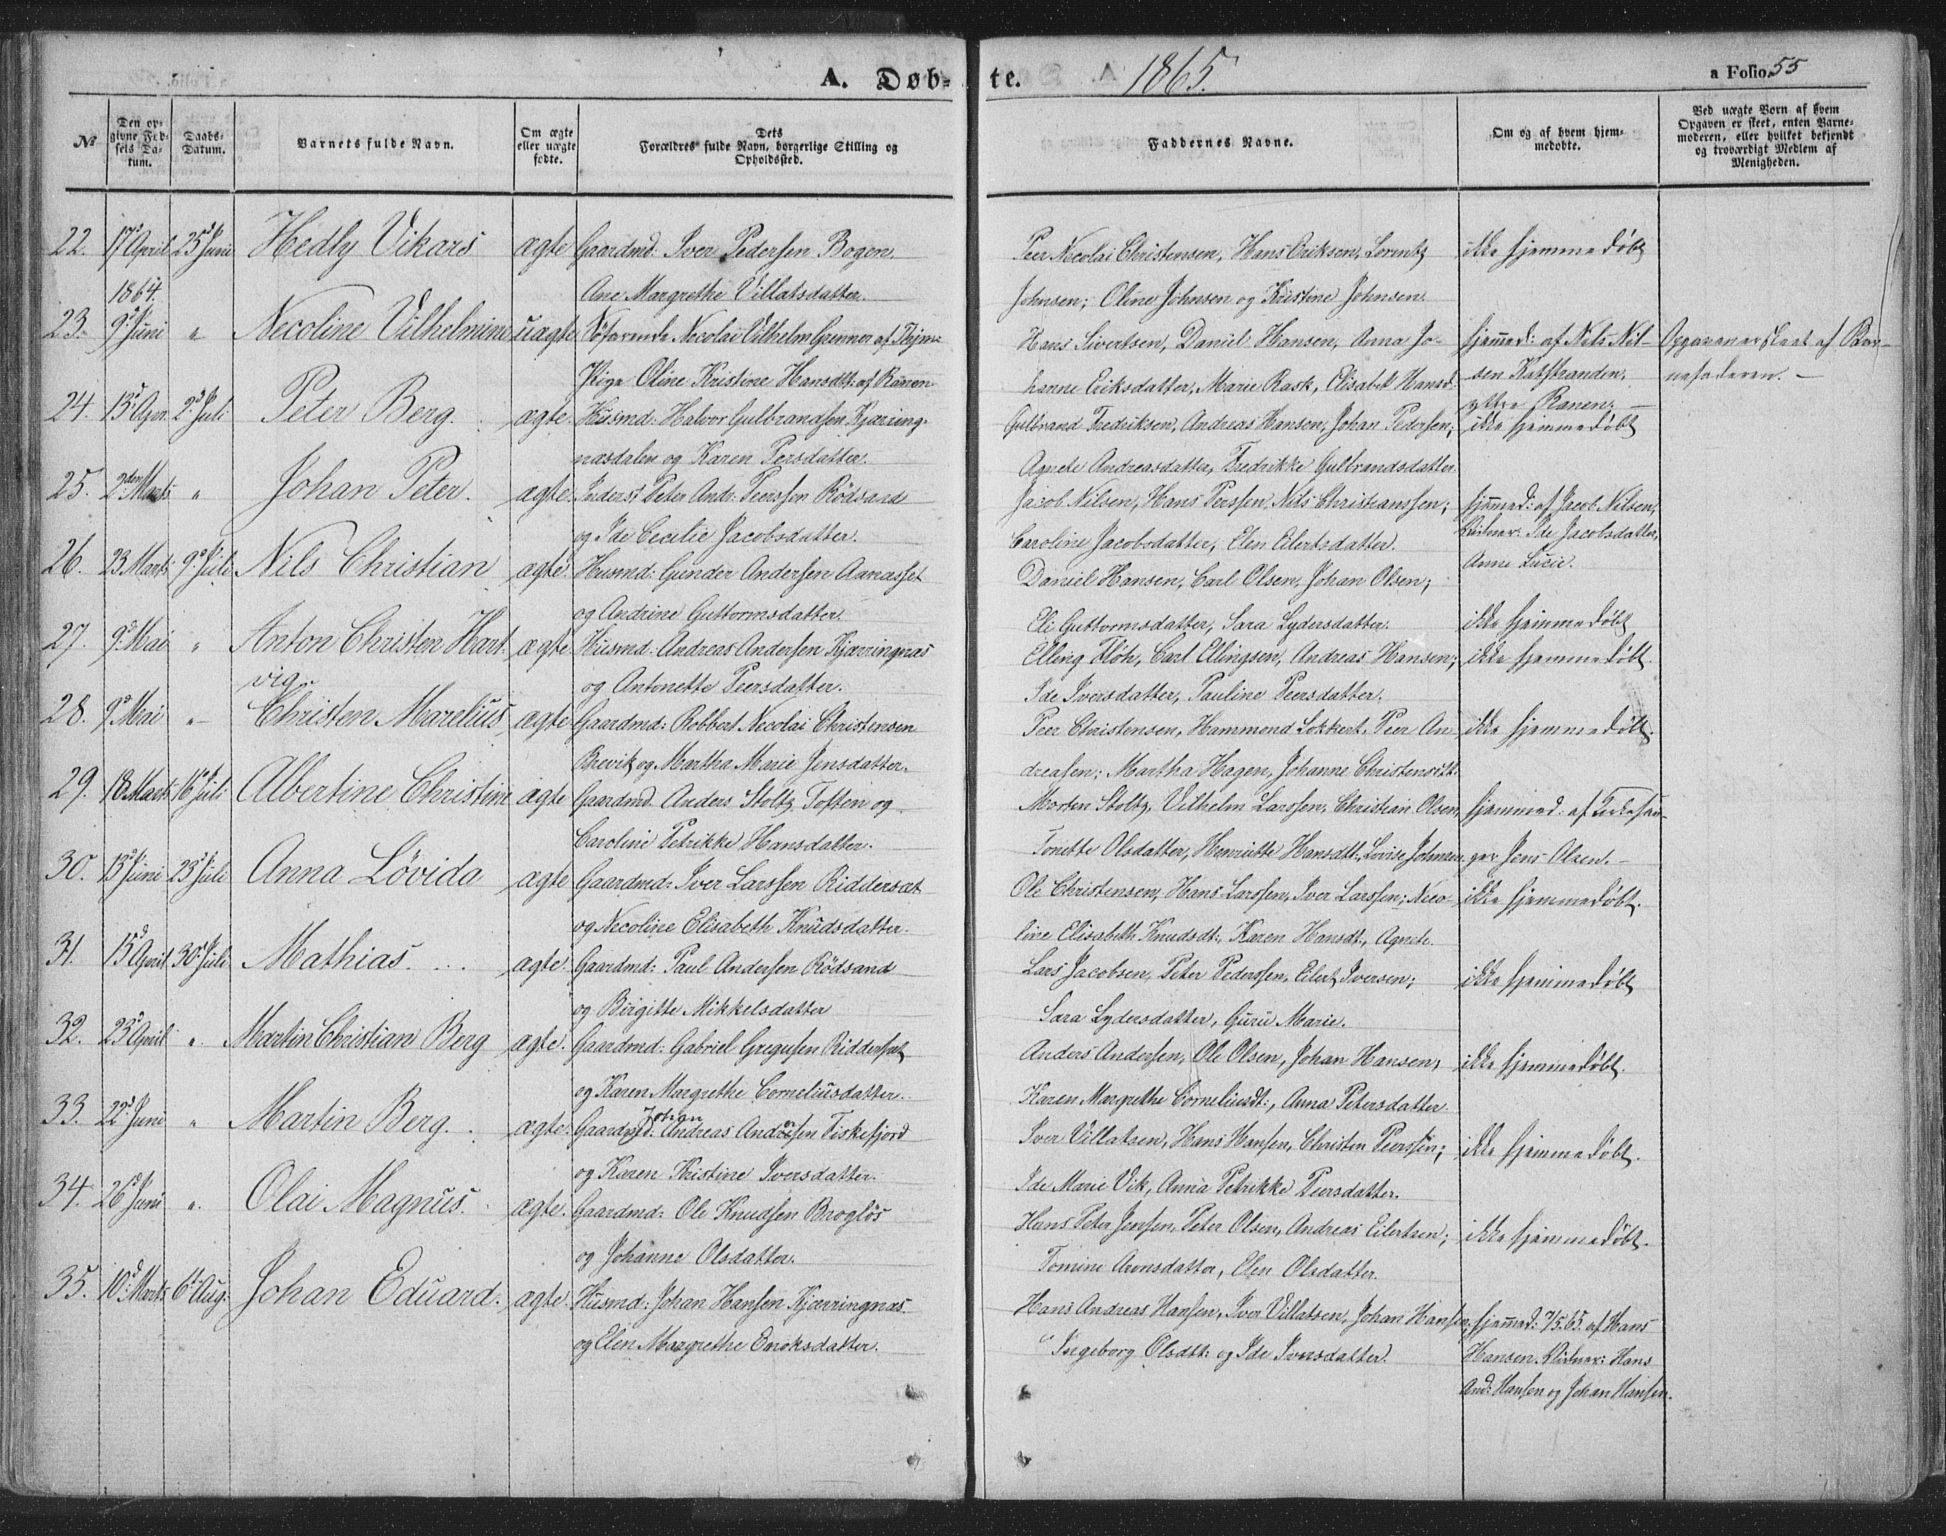 A. Døb- te. 1865. a Folio. 55
№
Den op-
givne Fød-
sels Da-
tum.
Daabs-
Datum.
Barnets fulde Navn.
Om ægte
eller uægte
fødte.
Dets
Forældres fulde Navn, borgerlige Stilling og
Opholdssted.
Faddernes Navne.
Om og af hvem hjem-
medøbte.
Ved uægte Born af hvem
Opgaven er skeet, enten Barne-
moderen, eller hvilket bekjendt
og troværdigt Medlem af
Menigheden.
22. 17d April 25d Juni Hedly Vikars ægte Gaardmd: Iver Pedersen Bogen
Ane Margrethe Villatsdatter.
Peer Nicolai Christensen, Hans Eriksen, Lorentz
Johnsen; Oline Johnsen og Kristine Johnsen.
ikke hjemmedøbt
1864.
23. 9d Juni " Necoline Vilhelmine uægte Søfarende Necolai Vilhelm Grenner af
Pige Oline Kristine Hansdt: af Ranen
Hans Sivertsen, Daniel Hansen, Anna Jo-
hanne Eriksdatter, Marie Rask, Elisabet Hansd.
hjemmed: af Nils Nil-
sen Katstranden,
yttre Ranen, —
Opgaven er skeet af Bar-
nefaderen. —
24. 13d Apr. 2d Juli Peter Berg. ægte. Husmd: Halvor Gulbrandsen Kjæring-
næsdalen og Karen Persdatter.
Gulbrand Fredriksen, Andreas Hansen, Johan Pedersen;
Agnete Andreasdatter, Fredrikke Gulbrandsdatter.
ikke hjemmedøbt
25. 2den Marts " Johan Peter. ægte. Inderst Peter Andr: Peersen Rødsand
og Ide Cecilie Jacobsdatter.
Jacob Nilsen, Hans Perssen, Nils Christianssen;
Caroline Jacobsdatter, Elen Eilertsdatter.
hjemmed: af Jacob Nilsen,
Vidner: Ide Jacobsdatter,
Anne Lucie.
26. 23 Marts 9d Juli Nils Christian ægte. Husmd: Gunder Andersen Aanasset
og Andrine Guttormsdatter.
Daniel Hansen, Carl Olsen, Johan Olsen;
Eli Guttormsdatter, Sara Lydersdatter.
ikke hjemmedøbt
27. 9d Mai " Anton Christen Hart-
vig.
ægte. Husmd: Andreas Andersen Kjærringnæs
og Antonette Peersdatter.
Elling Fløh, Carl Elingsen, Andreas Hansen;
Ide Iversdatter, Pauline Peersdatter.
ikke hjemmedøbt.
28. 9d Mai " Christen Marelius, ægte Gaardmd: Robbert Necolai Christensen
Brevik og Martha Marie Jensdatter.
Peer Christensen, Hammond Lokkert, Peer An-
dreasen; Martha Hagen, Johanne Christensdt.
ikke hjemmedøbt.
29. 18 Marts 16d Juli Albertine Christine ægte Gaardmd. Anders Stoltz Toften og
Caroline Petrikke Hansdatter.
Morten Stoltz, Vilhelm Larssen, Christian Olsen,
Tonette Olsdatter, Henriette Hansdt:, Lovise Johnsen
hjemmed: af Kirkesan-
ger Jens Olsen. —
30. 13d Juni 23d Juli Anna Løvida ægte Gaardmd: Iver Larssen Riddersæt
og Necoline Elisabeth Knudsdatter.
Ole Christensen, Hans Larssen, Iver Larssen; Neco-
line Elisabeth Knudsdt:, Karen Hansdt:, Agnete.
ikke hjemmedøbt.
31. 15d April 30d Juli Mathias. ægte. Gaardmd: Paul Andersen Rødsand
og Birgitte Mikkelsdatter
Lars Jacobsen, Peter Pederssen, Eilert Iversen;
Sara Lydersdatter, Guru Marie.
ikke hjemmedøbt
32. 23d April " Martin Christian Berg ægte. Gaardmd: Gabriel Gregusen Riddersæt
og Karen Margrethe Corneliusdatter.
Anders Andersen, Ole Olsen, Johan Hansen,
Karen Margrethe Corneliusdt:, Anna Petersdatter.
ikke hjemmedøbt.
33. 22d Juni " Martin Berg. ægte. Gaardmd: Johan Andreas Andersen Fiskefjord
og Karen Kristine Iversdatter.
Iver Villatsen, Hans Hansen, Christen Peerssen;
Ide Marie Vik, Anna Petrikke Peersdatter.
ikke hjemmedøbt.
34. 26d Juni " Olai Magnus. ægte. Gaardmd: Ole Knudsen Brogløs
og Johanne Olsdatter.
Hans Peter Jensen, Peter Olsen, Andreas Eilertsen;
Tomine Aronsdatter, Elen Olsdatter.
ikke hjemmedøbt.
35. 10d Marts 6t Aug. Johan Eduard. ægte. Husmd: Johan Hansen Kjærringnæs
og Elen Margrethe Enoksdatter.
Hans Andreas Hansen, Iver Villatsen, Johan Hansen,
Ingeborg Olsdt: og Ide Iversdatter.
hjemmed: 7/5.65. af Hans
Hansen. Vidner: Hans
And: Hansen og Johan Hansen.